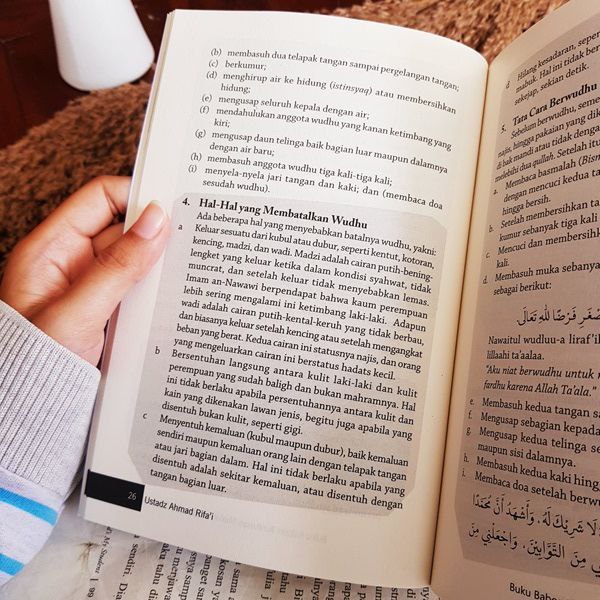 (b) membasuh dua telapak tangan sampai pergelangan tangan;
(c) berkumur;
(d) menghirup air ke hidung (istinsyaq) atau membersihkan
hidung;
(e) mengusap seluruh kepala dengan air;
(f) mendahulukan anggota wudhu yang kanan ketimbang yang
kiri;
(g) mengusap daun telinga baik bagian luar maupun dalamnya
dengan air baru;
(h) membasuh anggota wudhu tiga kali-tiga kali;
(i) menyela-nyela jari tangan dan kaki; dan (membaca doa
sesudah wudhu).
4. Hal-Hal yang Membatalkan Wudhu
Ada beberapa hal yang menyebabkan batalnya wudhu, yakni:
a Keluar sesuatu dari kubul atau dubur, seperti kentut, kotoran,
kencing, madzi, dan wadi. Madzi adalah cairan putih-bening-
lengket yang keluar ketika dalam kondisi syahwat, tidak
muncrat, dan setelah keluar tidak menyebabkan lemas.
Imam an-Nawawi berpendapat bahwa kaum perempuan
lebih sering mengalami ini ketimbang laki-laki. Adapun
wadi adalah cairan putih-kental-keruh yang tidak berbau,
dan biasanya keluar setelah kencing atau setelah mengangkat
beban yang berat. Kedua cairan ini statusnya najis, dan orang
yang mengeluarkan cairan ini berstatus hadats kecil.
b Bersentuhan langsung antara kulit laki-laki dan kulit
perempuan yang sudah baligh dan bukan mahramnya. Hal
ini tidak berlaku apabila persentuhannya antara kulit dan
kain yang dikenakan lawan jenis, begitu juga apabila yang
disentuh bukan kulit, seperti gigi.
c Menyentuh kemaluan (kubul maupun dubur), baik kemaluan
sendiri maupun kemaluan orang lain dengan telapak tangan
atau jari bagian dalam. Hal ini tidak berlaku apabila yang
disentuh adalah sekitar kemaluan, atau disentuh dengan
tangan bagian luar.
26
Ustadz Ahmad Rifa'i
d Hilang kesadaran, seper
mabuk. Hal ini tidak ber
sekejap, sekian detik.
5. Tata Cara Berwudhu
Sebelum berwudhu, seme
najis, hingga pakaian yang dik
di bak mandi atau tidak dengan
melebihi dua qullah. Setelah itu
a. Membaca basmalah (Bism
dengan mencuci kedua ta
hingga bersih.
b. Setelah membersihkan ta
kumur sebanyak tiga kali
c. Mencuci dan membersihk
kali.
d. Membasuh muka sebanya
sebagai berikut:
صْغَرِ فَرْضًا لِلّٰهِ تَعَالَى
Nawaitul wudluu-a liraf'il
lillaahi ta'aalaa.
"Aku niat berwudhu untuk m
fardhu karena Allah Ta'ala."
e. Membasuh kedua tangan sa
f. Mengusap sebagian kepada
g. Mengusap kedua telinga se
maupun sisi dalamnya.
h. Membasuh kedua kaki hing
i. Membaca doa setelah berwu
لَا شَرِيْكَ لَهُ. وَأَشْهَدُ أَنَّ مُحَمَّدًا
مِنَ التَّوَّابِيْنَ. وَاجْعَلْنِي مِنَ
Buku Babo